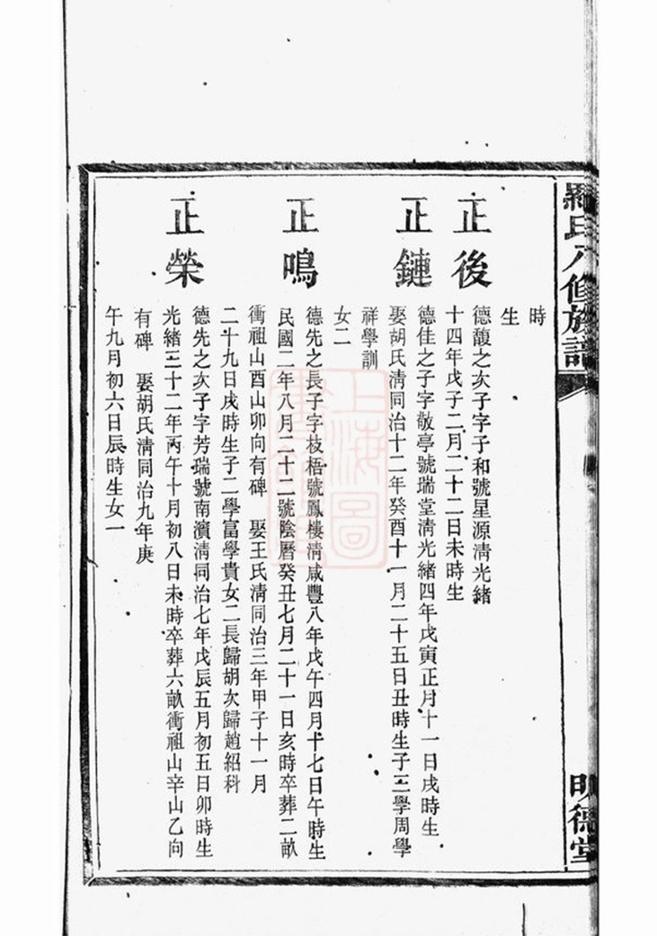 羅氏八修族譜
明德堂
時
生
正後
德馥之次子字子和號星源清光緒
十四年戊子二月二十二日未時生
正鏈
德佳之子字敬亭號瑞堂清光緒四年戊寅正月十一日戌時生
娶胡氏清同治十二年癸酉十一月二十五日丑時生子三學周學
祥學訓
女二
正鳴
德先之長子字枝梧號鳳樓清咸豐八年戊午四月十七日午時生
民國二年八月二十二號陰曆癸丑七月二十一日亥時卒葬二畝
衝祖山酉山卯向有碑 娶王氏清同治三年甲子十一月
二十九日戌時生子二學富學貴女二長歸胡次歸趙紹科
正榮
德先之次子字芳瑞號南濱清同治七年戊辰五月初五日卯時生
光緒三十二年丙午十月初八日未時卒葬六畝衝祖山辛山乙向
有碑 娶胡氏清同治九年庚
午九月初六日辰時生女一
上海圖書館藏